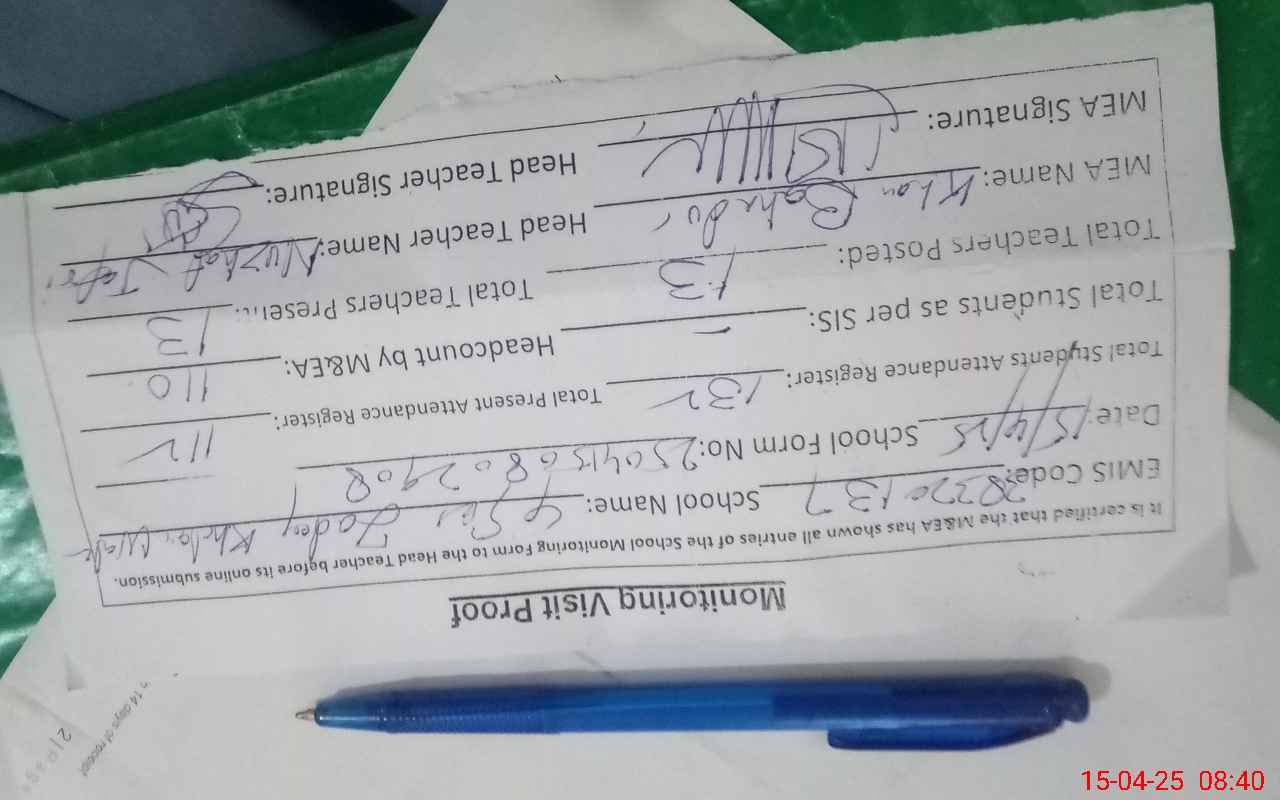 Monitoring Visit Proof
It is certified that the M&EA has shown all entries of the School Monitoring Form to the Head Teacher before its online submission.
EMIS Code: 38320137 School Name:
Date: 15/4/25 School Form No: 2504150802908
Total Students Attendance Register: 132 Total Present Attendance Register: 112
Total Students as per SIS: – Headcount by M&EA: 110
Total Teachers Posted: 13 Total Teachers Present: 13
MEA Name: Khan Bahadur Head Teacher Name: Nuzhat Jafri
MEA Signature: Head Teacher Signature:
14 days of receipt
2 | P a g
15-04-25 08:40